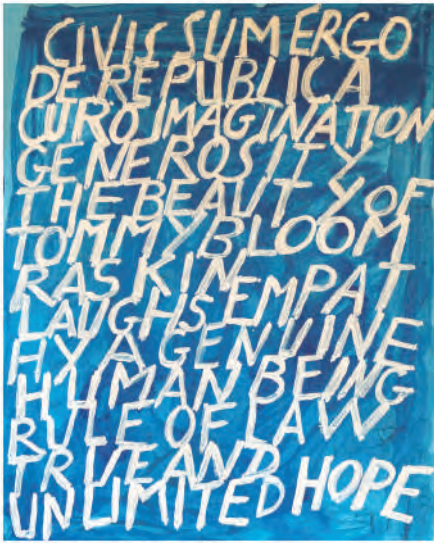 CIVIS SUM ERGO
DE REPUBLICA
CURO IMAGINATION
GENEROSITY
THE BEAUTY OF
TOMMY BLOOM
RASKIN EMPAT
LAUGHS
HY A GENUINE
HUMAN BEING
RULE OF LAW
TRUE AND
UNLIMITED HOPE